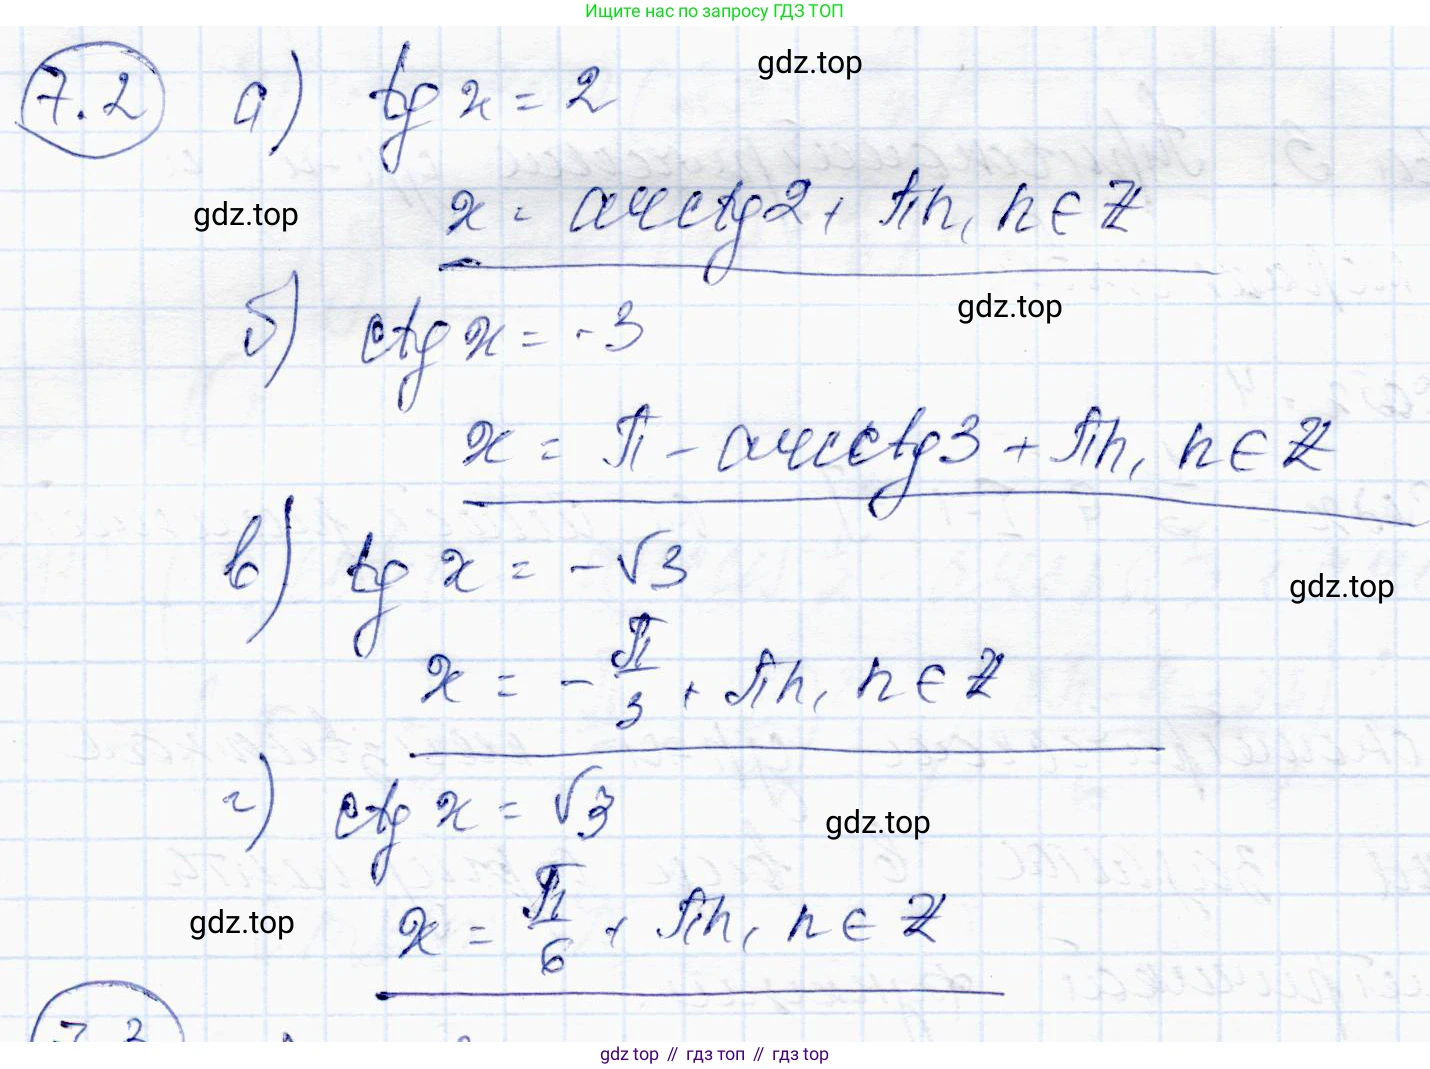 Ищите нас по запросу ГДЗ ТОП
7.2 а) tg x = 2
gdz.top
x = arcctg 2 + πn, n ∈ Z
gdz.top
б) ctg x = -3
gdz.top
x = π - arcctg 3 + πn, n ∈ Z
в) tg x = -√3
gdz.top
x = -π/3 + πn, n ∈ Z
г) ctg x = √3
gdz.top
x = π/6 + πn, n ∈ Z
gdz.top
7.3
gdz top // гдз топ // gdz top